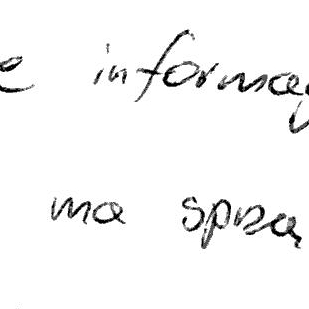 e informac
ma spra